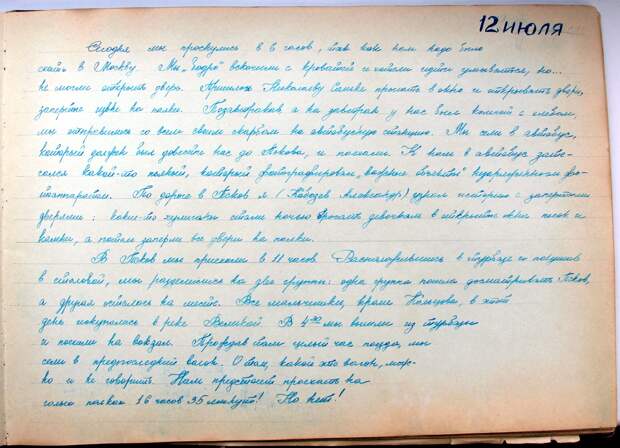 12 ИЮЛЯ
Сегодня мы проснулись в 6 часов, так как нам надо было
ехать в Москву. Мы „бодро" вскочили с кроватей и хотели идти умываться, но...
не могли открыть дверь. Пришлось Николаеву Сашке пролезть в окно и открывать двери,
запертые извне на палки. Позавтракав а на завтрак у нас был кофе с хлебом,
мы отправились со всем своим скарбом на автобусную станцию. Мы сели в автобус,
который должен был довезти нас до Пскова, и поехали. К нам в автобус
какой-то пьяный, который фотографировал „важные объекты" фо-
тоаппаратом. По дороге в Псков я (Александр) узнал историю с запертыми
дверями: какие-то хулиганы стали ночью бросать девочкам в окна песок и
камни, а потом заперли все двери на палки.
В Псков мы приехали в 11 часов. Расположившись в турбазе и поевши
в столовой, мы разделились на две группы: одна группа пошла досматривать Псков,
а другая осталась на месте. Все мальчишки, кроме Кольцова, в этот
день покупались в реке Великой. В 4 30 мы вышли из турбазы
и поехали на вокзал. Прождав там целый час поезда, мы
сели в предпоследний вагон. О том, какой это вагон, мож-
но и не говорить. Нам предстоит проспать на
голых полках 16 часов 35 минут! Но нет!